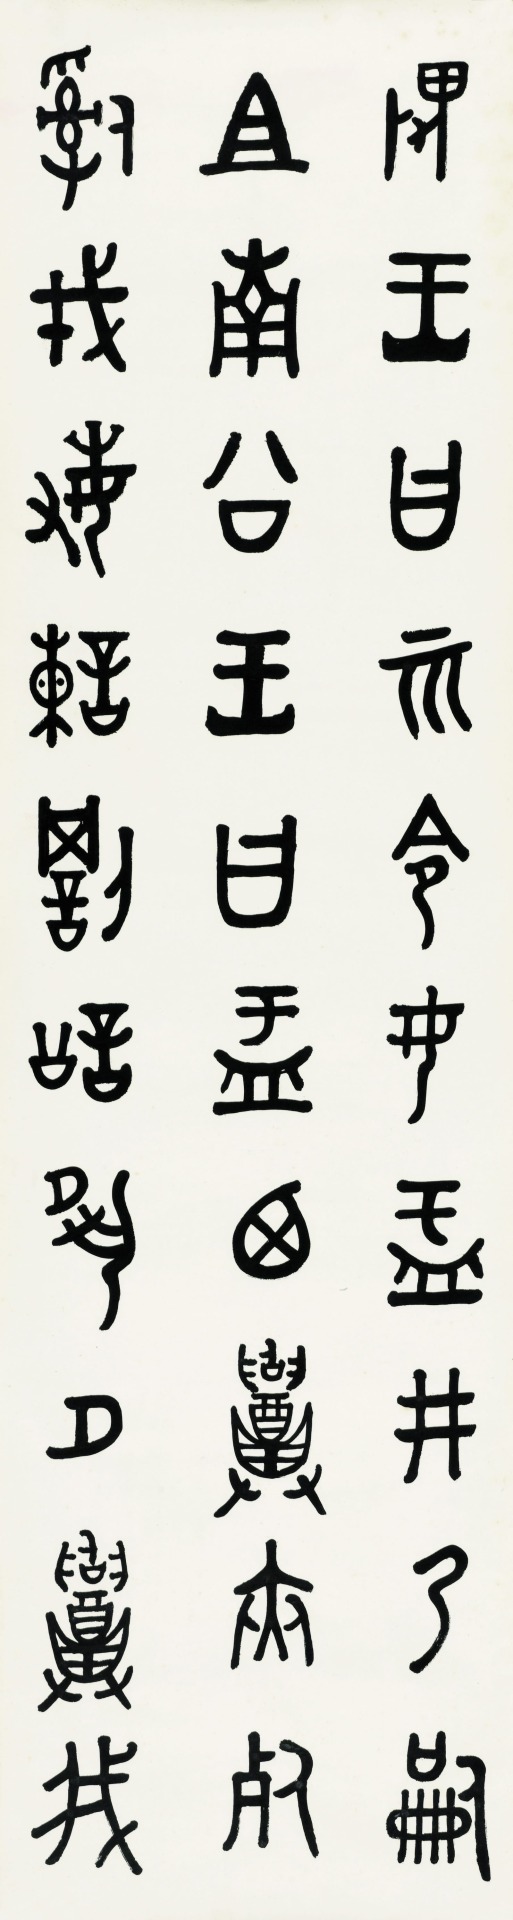 畏王曰而令女盂井乃嗣
且南公王曰盂廼召夾死
𤔲戎敏諫罰訟夙夕召我